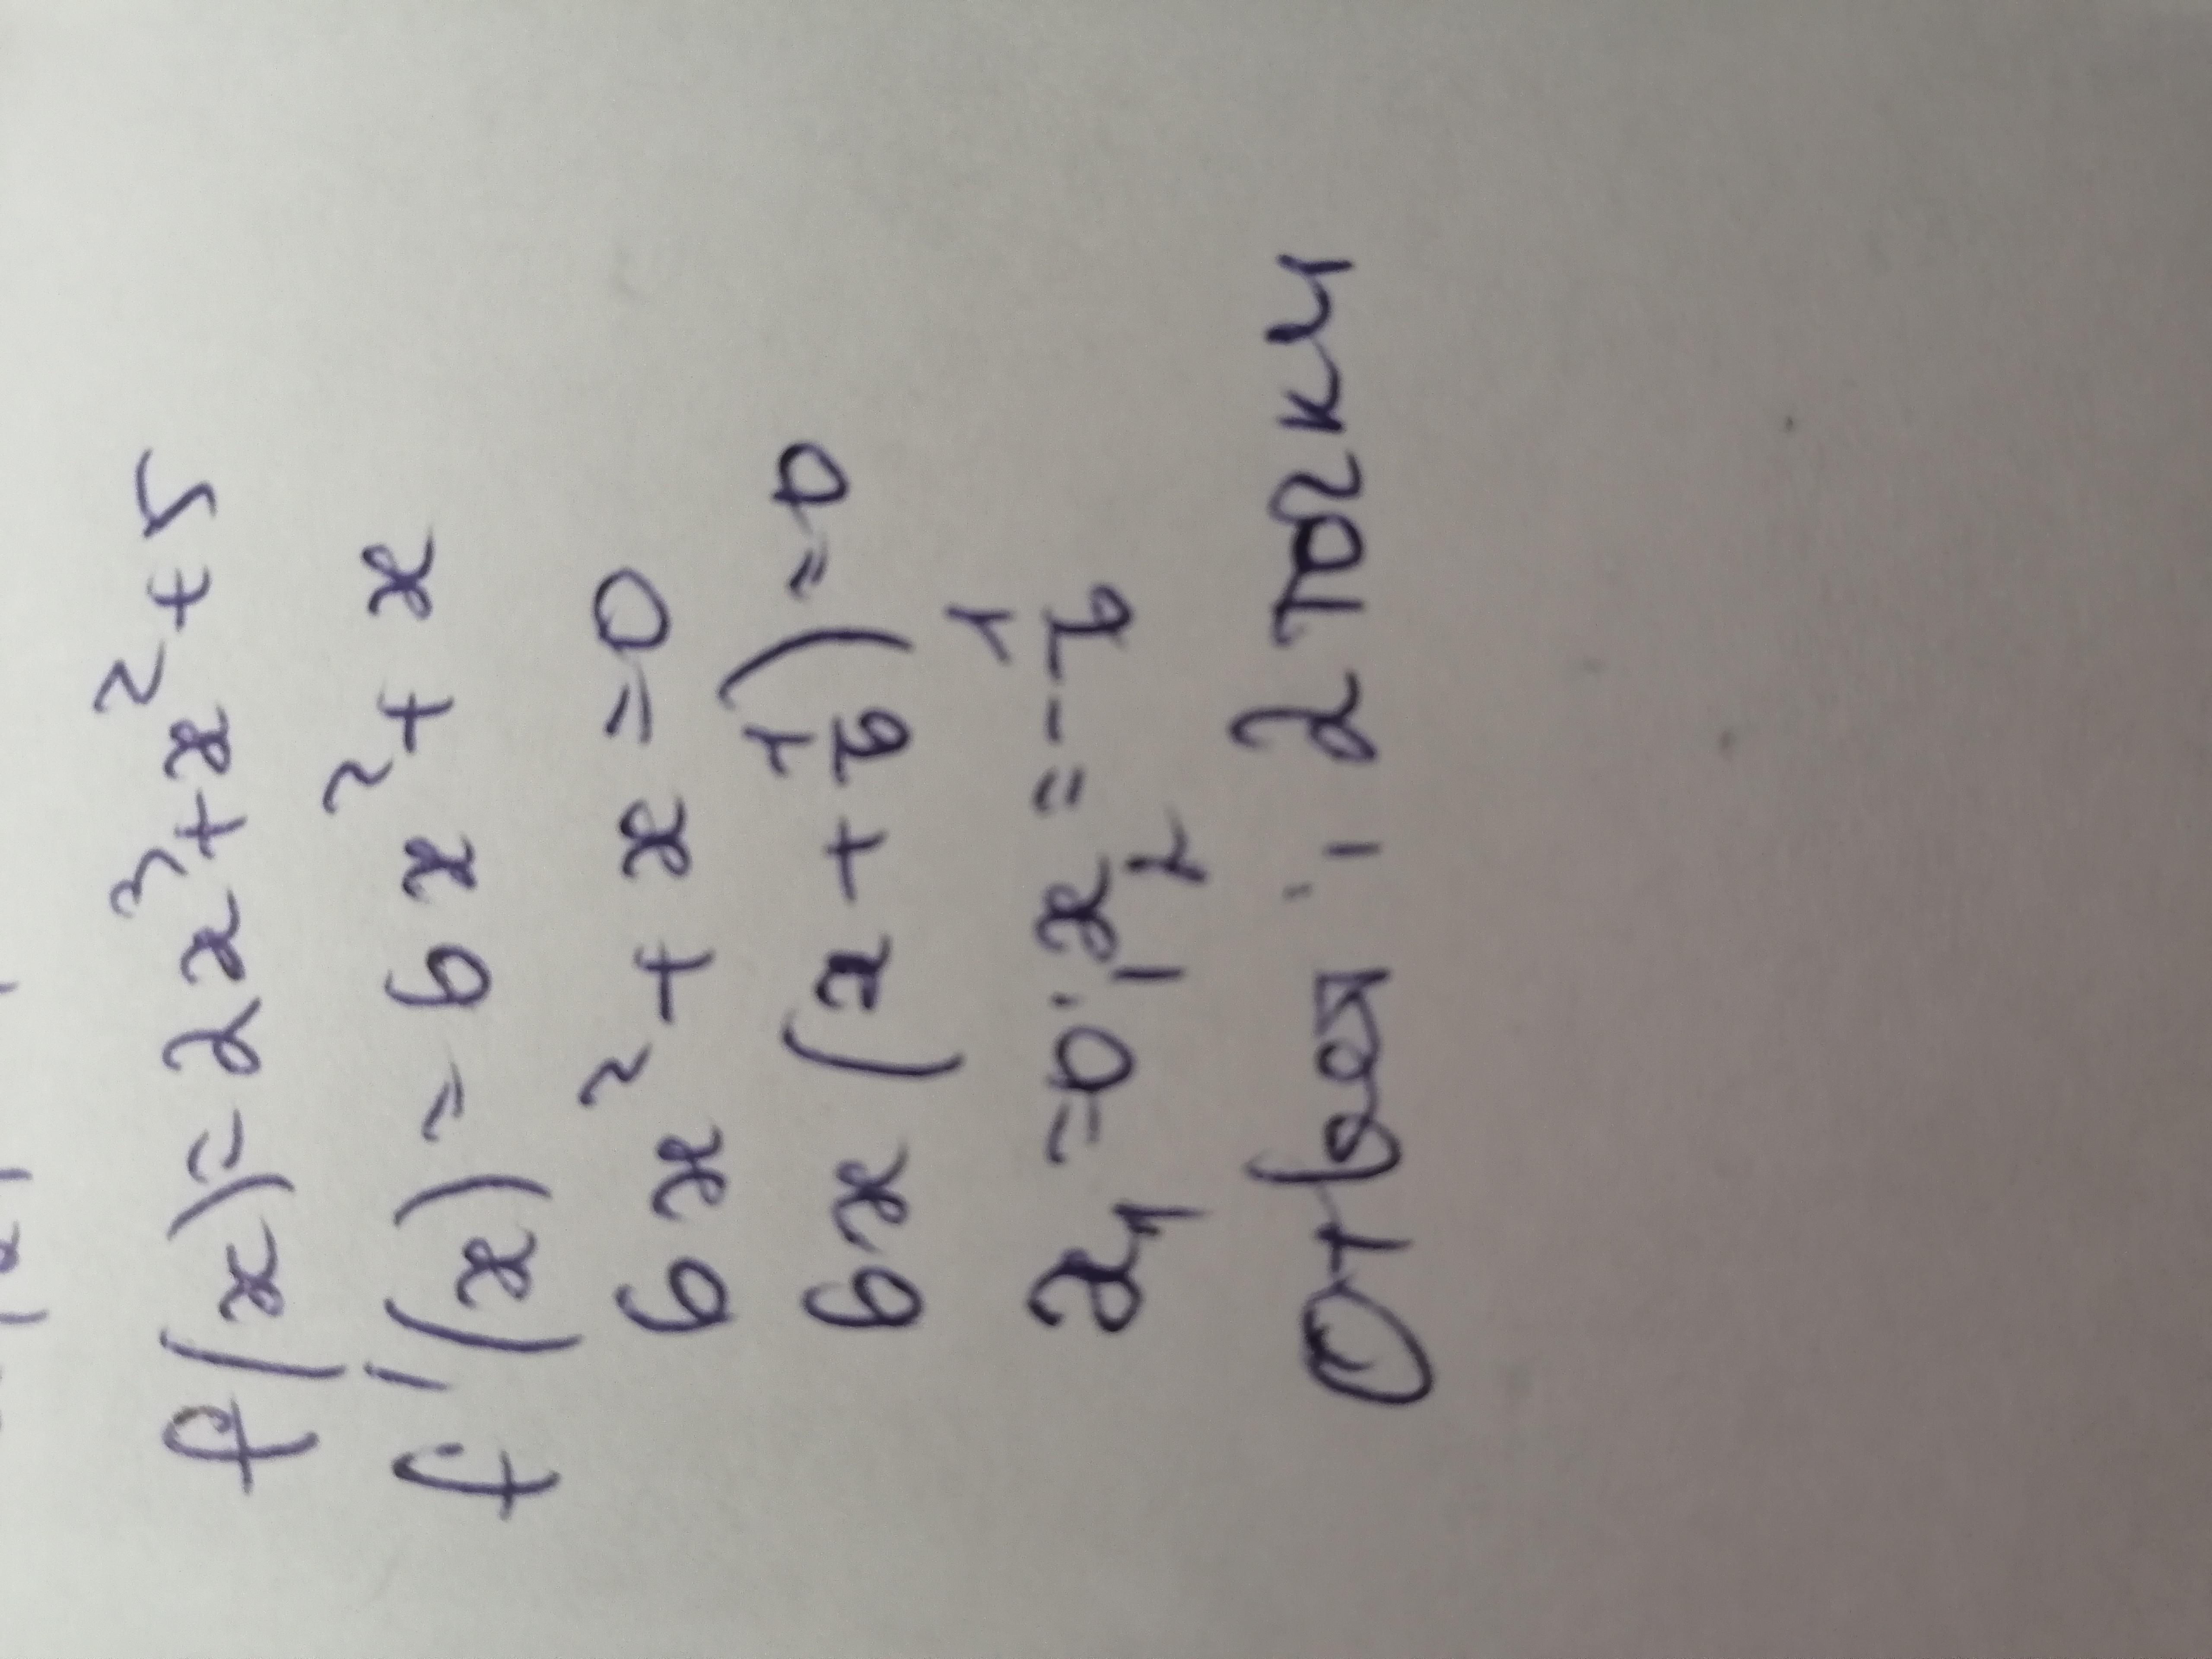 f(x)=2x³+x²+5
f'(x)=6x²+x
6x²+x=0
6x(x+1/6)=0
x₁=0; x₂=-1/6
Ответ: 2 точки